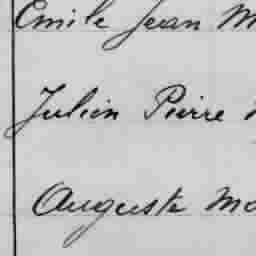 Emile Jean M
Julien Pierre
Auguste Ma